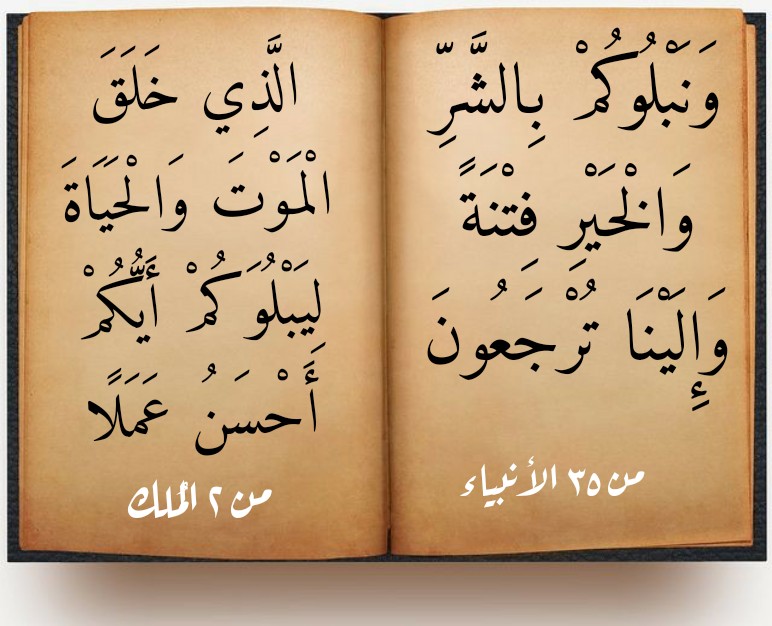 وَنَبْلُوكُمْ بِالشَّرِّ
وَالْخَيْرِ فِتْنَةً
وَإِلَيْنَا تُرْجَعُونَ
من ٣٥ الأنبياء
الَّذِي خَلَقَ
الْمَوْتَ وَالْحَيَاةَ
لِيَبْلُوَكُمْ أَيُّكُمْ
أَحْسَنُ عَمَلًا
من ٢ الملك